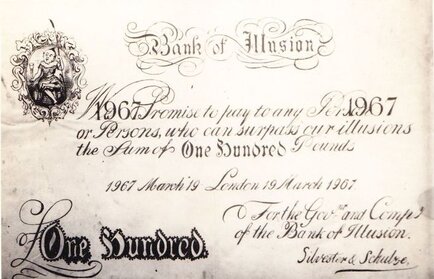 Bank of Illusion
We Promise to pay to any Person
1967 1967
or Persons, who can surpass our illusions
the Sum of One Hundred Pounds
1967 March 19 London 19 March 1967
For the Govrs and Compy
of the Bank of Illusion.
£One Hundred.
Silvester & Schulze.